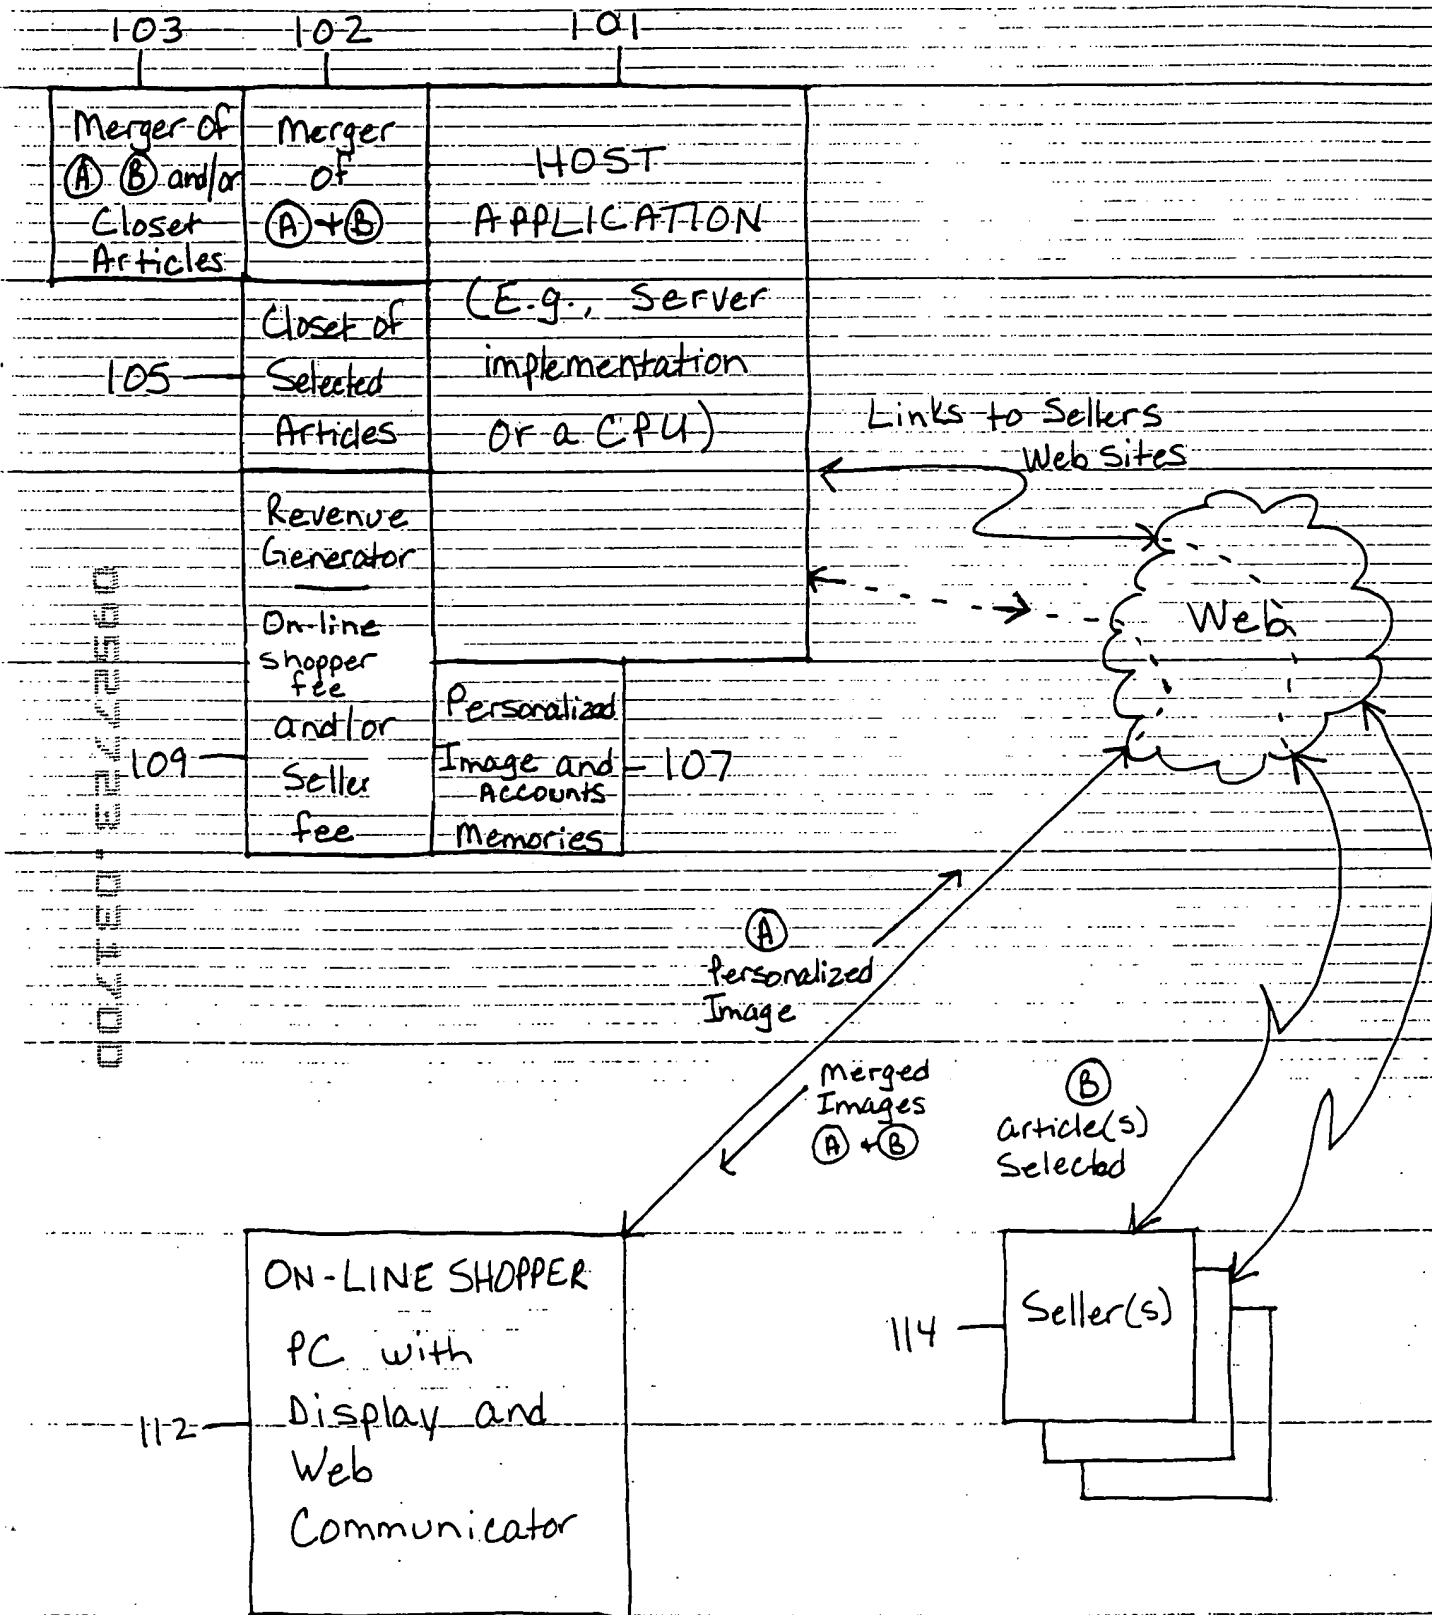 103
102
101
Merger of
Ⓐ Ⓑ and/or
Closet
Articles
Merger
of
Ⓐ + Ⓑ
HOST
APPLICATION
(E.g., Server
implementation
or a CPU)
105
Closet of
Selected
Articles
Links to Sellers
Web Sites
Revenue
Generator
On-line
shopper
fee
and/or
Seller
fee
109
Personalized
Image and
Accounts
Memories
107
Web
Ⓐ
Personalized
Image
Merged
Images
Ⓐ + Ⓑ
Ⓑ
article(s)
Selected
ON-LINE SHOPPER
PC with
Display and
Web
Communicator
112
Seller(s)
114